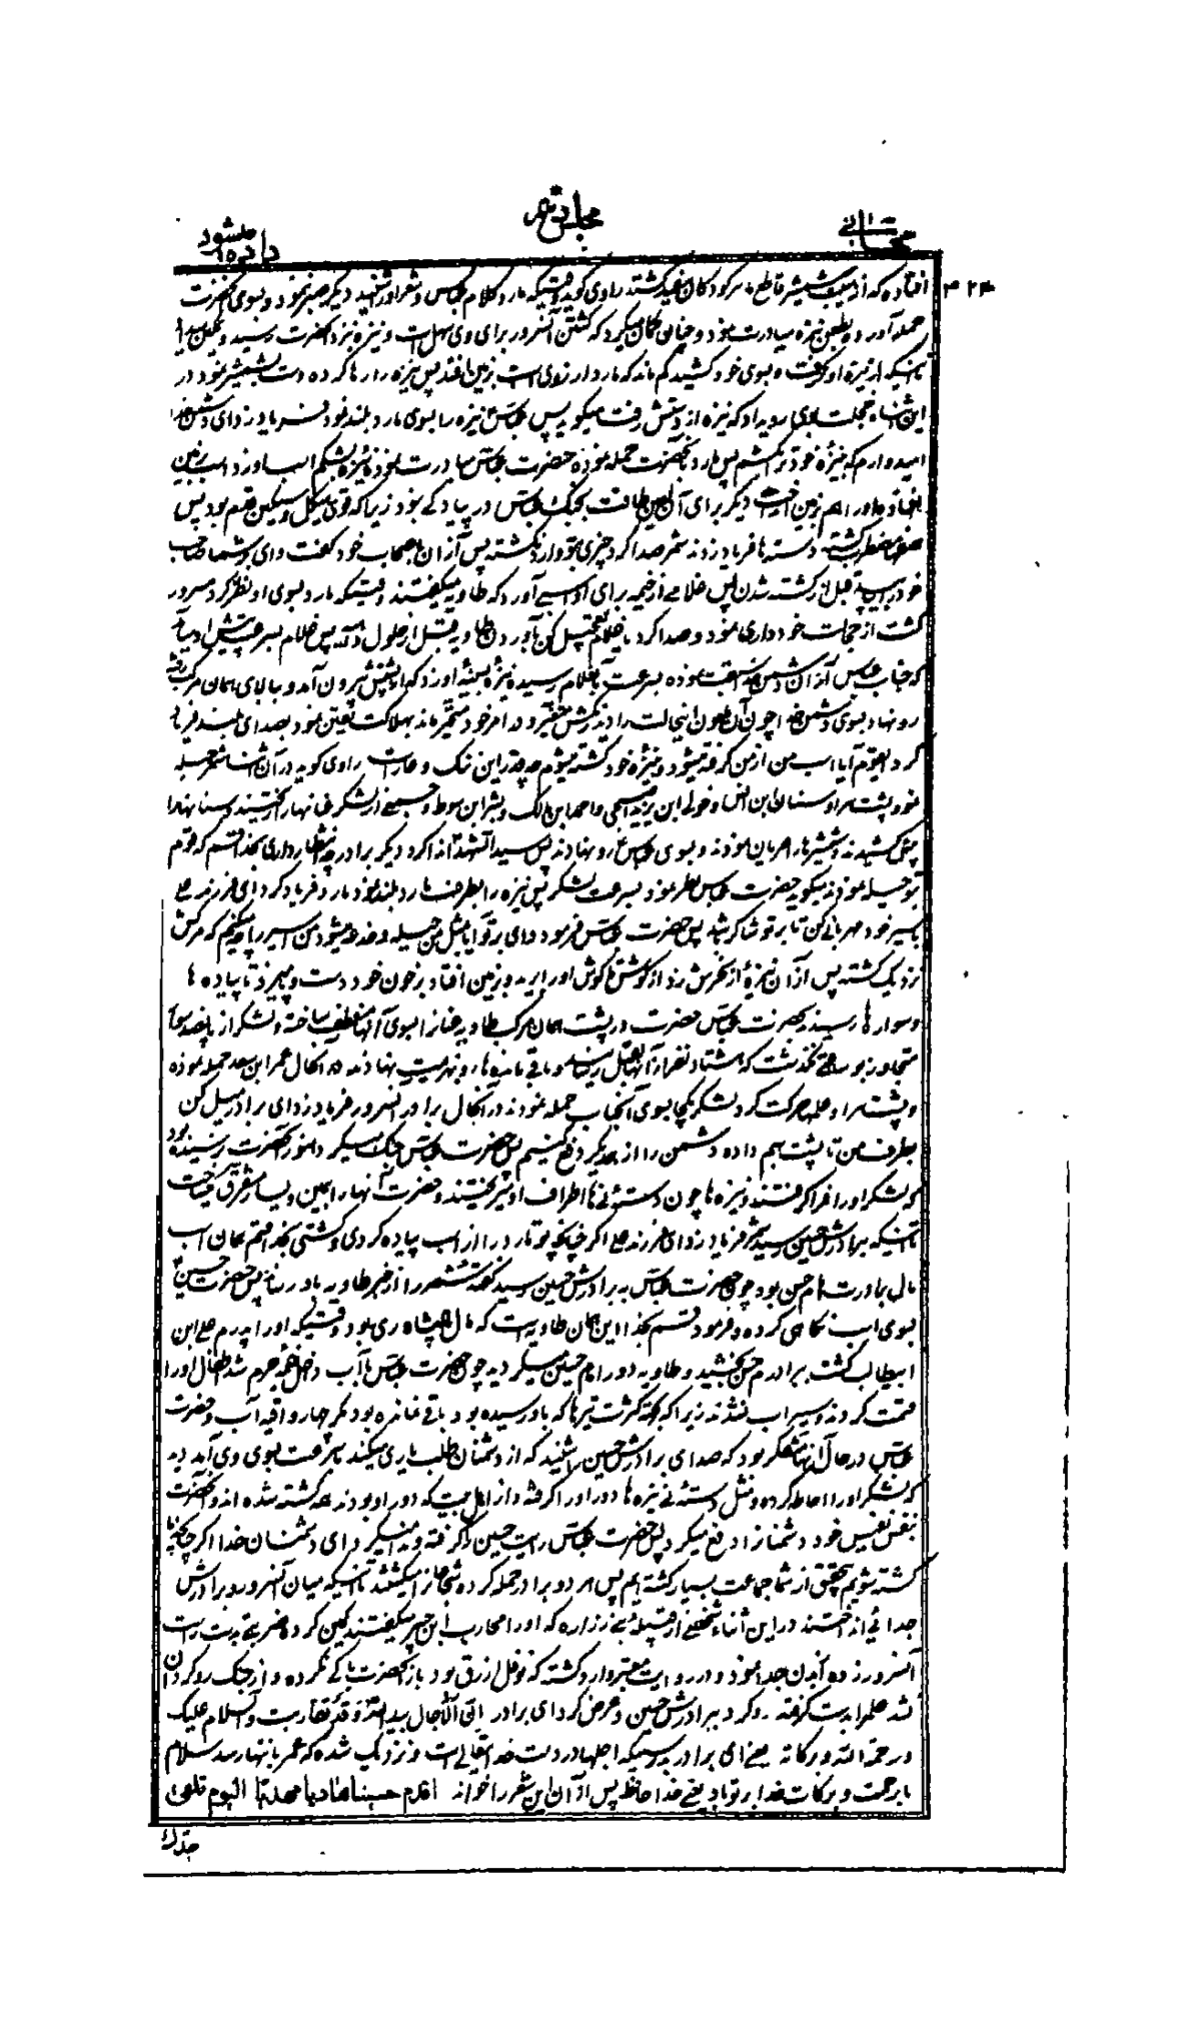 مجلس نهم
۴۲۴
افتاده که از ضرب شمشیر قاطع ما سر کودکان سفید گشته راوی گوید وقتیکه مارد کلام عباس و شعر او را شنید دیگر صبر ننمود و بسوی آنحضرت
حمله آورده بطعن نیزه مبادرت نمود و چنان گمان میکرد که کشتن آنسرور برای وی سهل است و نیزه بنزد آنحضرت رسید
تا اینکه از نیزه او گرفت و بسوی خود کشید که مارد از روی اسب بزمین افتد پس نیزه را رها کرده دست بشمشیر نمود در
این اثناء خجلت باو رویداد که نیزه از دستش رفت میگوید پس عباس نیزه را بسوی مارد بلند نمود فریاد زد ای دشمن خدا
امیدوارم که بنیزه خودت ترا بکشم پس مارد بآنحضرت حمله نموده حضرت عباس مبادرت نمود نیزه بشکم اسب او زد اسب بزمین
افتاد و مارد را هم بزمین انداخت دیگر برای آن لعین طاقت بجنگ عباس در پیادگی نبود زیرا که قوی هیکل و سنگین جسم بود پس
صفها مضطرب گشته دسته ها فریاد زدند شمر صدا کرد چیزی بتو وارد نگشته پس از آن باصحاب خود گفت وای بر شما صاحب
خود برسید قبل از کشته شدن پس غلامی از خیمه برای او اسبی آورد که طاویه میگفتند وقتیکه مارد بسوی او نظر کرد مسرور
گشت از خجالت خودداری نمود و صدا کرد یا غلام تعجیل کن بآوردن طاویه قبل از حلول داهیه پس غلام بسرعت پیش او دوید
که جناب عباس از آن دشمن خدا سبقت نموده بسرعت بآن غلام رسیده نیزه بسینه او زد که از پشتش بیرون آمد و بالای همان مرکب رفته
رو نهاد بسوی دشمن خدا چون آن ملعون اینحالت را دید رنگش متغیر و در امر خود متحیر ماند بهلاکت یقین نمود بصدای بلند فریاد
کرد یا قوم آیا اسب من از من گرفته میشود و بنیزه خود کشته میشوم چه قدر این ننگ و عار است راوی گوید در آن اثنا شمر حمله
نمود پشت سر او سنان ابن انس و خولی ابن یزید اصبحی و احمد ابن مالک و بشر ابن سوط و جمیعی از لشکر عنانها را ریختند و سنانها را
پیش کشیدند و شمشیرها را عریان نمودند و بسوی عباس رو نهادند پس سید الشهدا ندا کرد دیگر برادر چه انتظار داری بخدا قسم که قوم
بتو حمله نمودند میگوید حضرت عباس نظر نمود بسرعت لشکر پس نیزه را بطرف مارد بلند نمود مارد فریاد کرد ای فرزند علی
باسیر خود مهربانی کن تا بر تو شاکر باشد پس حضرت عباس فرمود وای بر تو آیا بمثل من حیله و خدعه میشود من اسیر را چه میکنم که مرگش
نزدیک گشته پس از آن نیزه از نحرش زد از گوش تا گوش او را برید و بزمین افتاد در خون خود دست و پا میزد تا پیاده ها
و سوارها رسیدند بحضرت عباس حضرت در پشت همان مرکب طاویه عنان را بسوی آنها منعطف ساخته و لشکر از پانصد سوار
متجاوز بود ساعتی نگذشت که هشتاد نفر از آنها بقتل رسید و باقی مانده ها رو بهزیمت نهادند در آنحال عمر ابن سعد حمله نموده
و پشت سر او علمها حرکت کرد لشکر یکجا بسوی آنجناب حمله نمودند در آنحال برادر آنسرور فریاد زد ای برادر میل کن
بطرف من تا پشت بهم داده دشمن را از همدیگر دفع کنیم پس حضرت عباس جنگ میکرد و هنوز بآنحضرت نرسیده بود
که لشکر او را فرا گرفتند و نیزه ها چون دسته نی باطراف او میریختند و حضرت آنها را یمین و یسار متفرق میساخت
تا اینکه ببرادرش حسین رسید شمر فریاد زد ای فرزند علی اگر چنانچه تو مارد را از اسب پیاده کردی و کشتی بخدا قسم همان اسب
مال برادرت امام حسن بود چون حضرت عباس به برادرش حسین رسید گفته شمر را از خبر طاویه باو رسانید پس حضرت حسین
بسوی اسب نگاهی کرده و فرمود قسم بخدا این همان طاویه است که مال پادشاه ری بود وقتیکه او را پدرم علی ابن
ابیطالب کشت ببرادرم حسن بخشید و طاویه دور امام حسین میگردید چون حضرت عباس با آب داخل خیمه حرم شد اطفال او را
قسمت کردند و سیراب نشدند زیرا که بجهة کثرت تیرها که باو رسیده بود باقی نمانده بود مگر چهار وقیه آب و حضرت
عباس در حال آنها متفکر بود که صدای برادرش حسین را شنید که از دشمنان طلب یاری میکند بسرعت بسوی وی آمد دید
که لشکر او را احاطه کرده و مثل دسته نی نیزه ها دور او را گرفته و از اهل بیت که دور او بودند همه کشته شده اند و آنحضرت
بنفس نفیس خود دشمنان را دفع میکرد پس حضرت عباس رایت حسین را گرفته و میگفت ای دشمنان خدا اگر چنانکه ما
کشته شویم بتحقیق از شما جماعت بسیار کشته ایم پس هر دو برادر حمله کرده شجاعان را میکشتند تا اینکه میان آنسرور و برادرش
جدائی انداختند در این اثناء شخصی از قبیله بنی زراره که او را محارب ابن جبیر میگفتند کمین کرد و ضربتی بدست راست
آنسرور زده از بدن جدا نمود و در روایت معتبر وارد گشته که نوفل ازرق بود باز آنحضرت باکی نکرده و از جنگ روگردان
نشد علم را بدست گرفته رو کرد ببرادرش حسین و عرض کرد ای برادر انّ الآجال بید اللّه و قد تقاربت و السلام علیک
و رحمة اللّه و برکاته یعنی ای برادر بدرستیکه اجلها در دست خدای تعالی است و نزدیک شده که عمر بانتها رسد سلام
با رحمت و برکات خدا بر تو باد یعنی خدا حافظ پس از آن این شعر را خواند اقدم حسینا هادیا مهدیا الیوم تلقی
جدّک